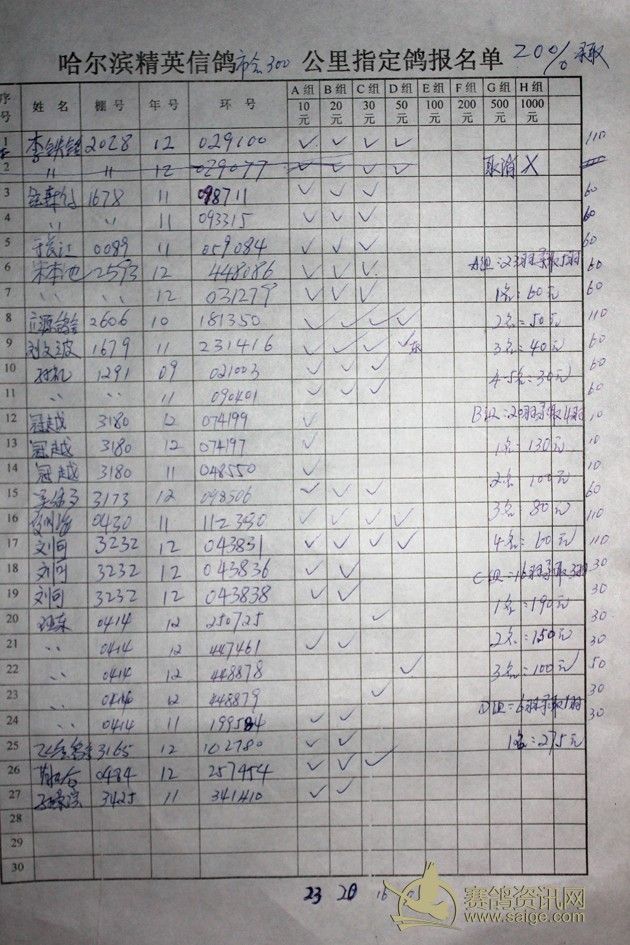 哈尔滨精英信鸽市会300 公里指定鸽报名单 20% 录取
序号 姓名 棚号 年号 环号 A组 10元 B组 20元 C组 30元 D组 50元 E组 100元 F组 200元 G组 500元 H组 1000元
1 2028 12 029100 ✓ ✓ ✓ ✓ 110
2 〃 〃 12 029077 ✓ ✓ ✓ ✓ 取消 X
3 1678 11 098711 ✓ ✓ ✓ 60
4 〃 〃 11 093315 ✓ ✓ ✓ 60
5 于长江 0089 11 059084 ✓ ✓ ✓ 60
6 宋本池 2593 12 448086 ✓ ✓ ✓ A组:23羽录取5羽 60
7 〃 〃 12 031279 ✓ ✓ ✓ 1名:60元 60
8 2606 10 181350 ✓ ✓ ✓ ✓ 2名:50元 110
9 刘文波 1679 11 231416 ✓ ✓ ✓ ✓ 3名:40元 60
10 1291 09 021003 ✓ ✓ ✓ 4-5名:30元 60
11 〃 〃 11 090401 ✓ ✓ ✓ 60
12 冠越 3180 12 074199 ✓ B组:20羽录取4羽 10
13 冠越 3180 12 074197 ✓ 1名:130元 10
14 冠越 3180 11 048550 ✓ 2名:100元 10
15 3173 12 098306 ✓ ✓ ✓ 60
16 0430 11 112390 ✓ ✓ ✓ ✓ 3名 80元 110
17 刘可 3232 12 043831 ✓ ✓ ✓ ✓ 4名:60元 110
18 刘可 3232 12 043836 ✓ ✓ C组:16羽录取3羽 30
19 刘可 3232 12 043838 ✓ ✓ 1名:190元 30
20 0414 12 250725 ✓ 30
21 〃 0414 12 447461 ✓ ✓ 2名:150元 30
22 〃 0414 12 448878 ✓ 3名:100元 50
23 〃 0414 12 448879 ✓ D组:6羽录取1羽 30
24 〃 0414 11 199584 ✓ ✓ 30
25 3165 12 102780 ✓ ✓ 1名:275元
26 0484 12 257454 ✓ ✓ ✓
27 3425 11 341410 ✓ ✓
28
29
30
23 20 16
赛鸽资讯网
www.saige.com